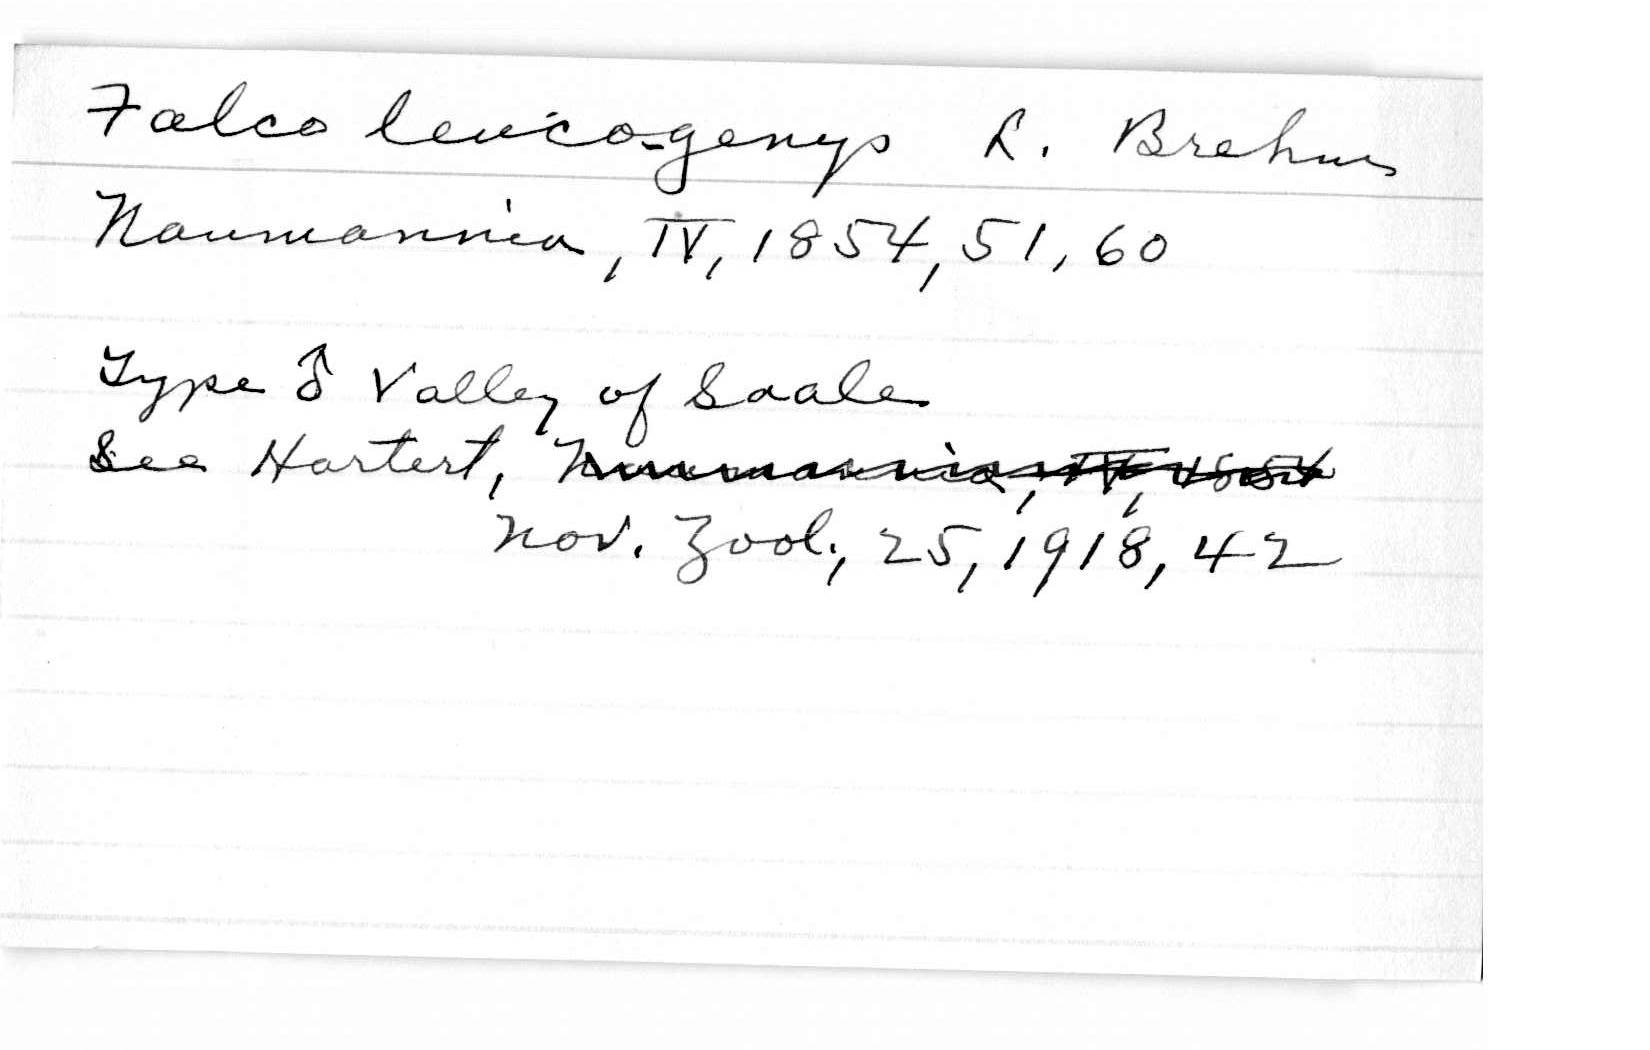 Falco leucogenys L. Brehm
Naumannia, IV, 1854, 51, 60
Type ♂ Valley of Saale
See Hartert, Naumannia, IV, 1854
Nov. Zool., 25, 1918, 42